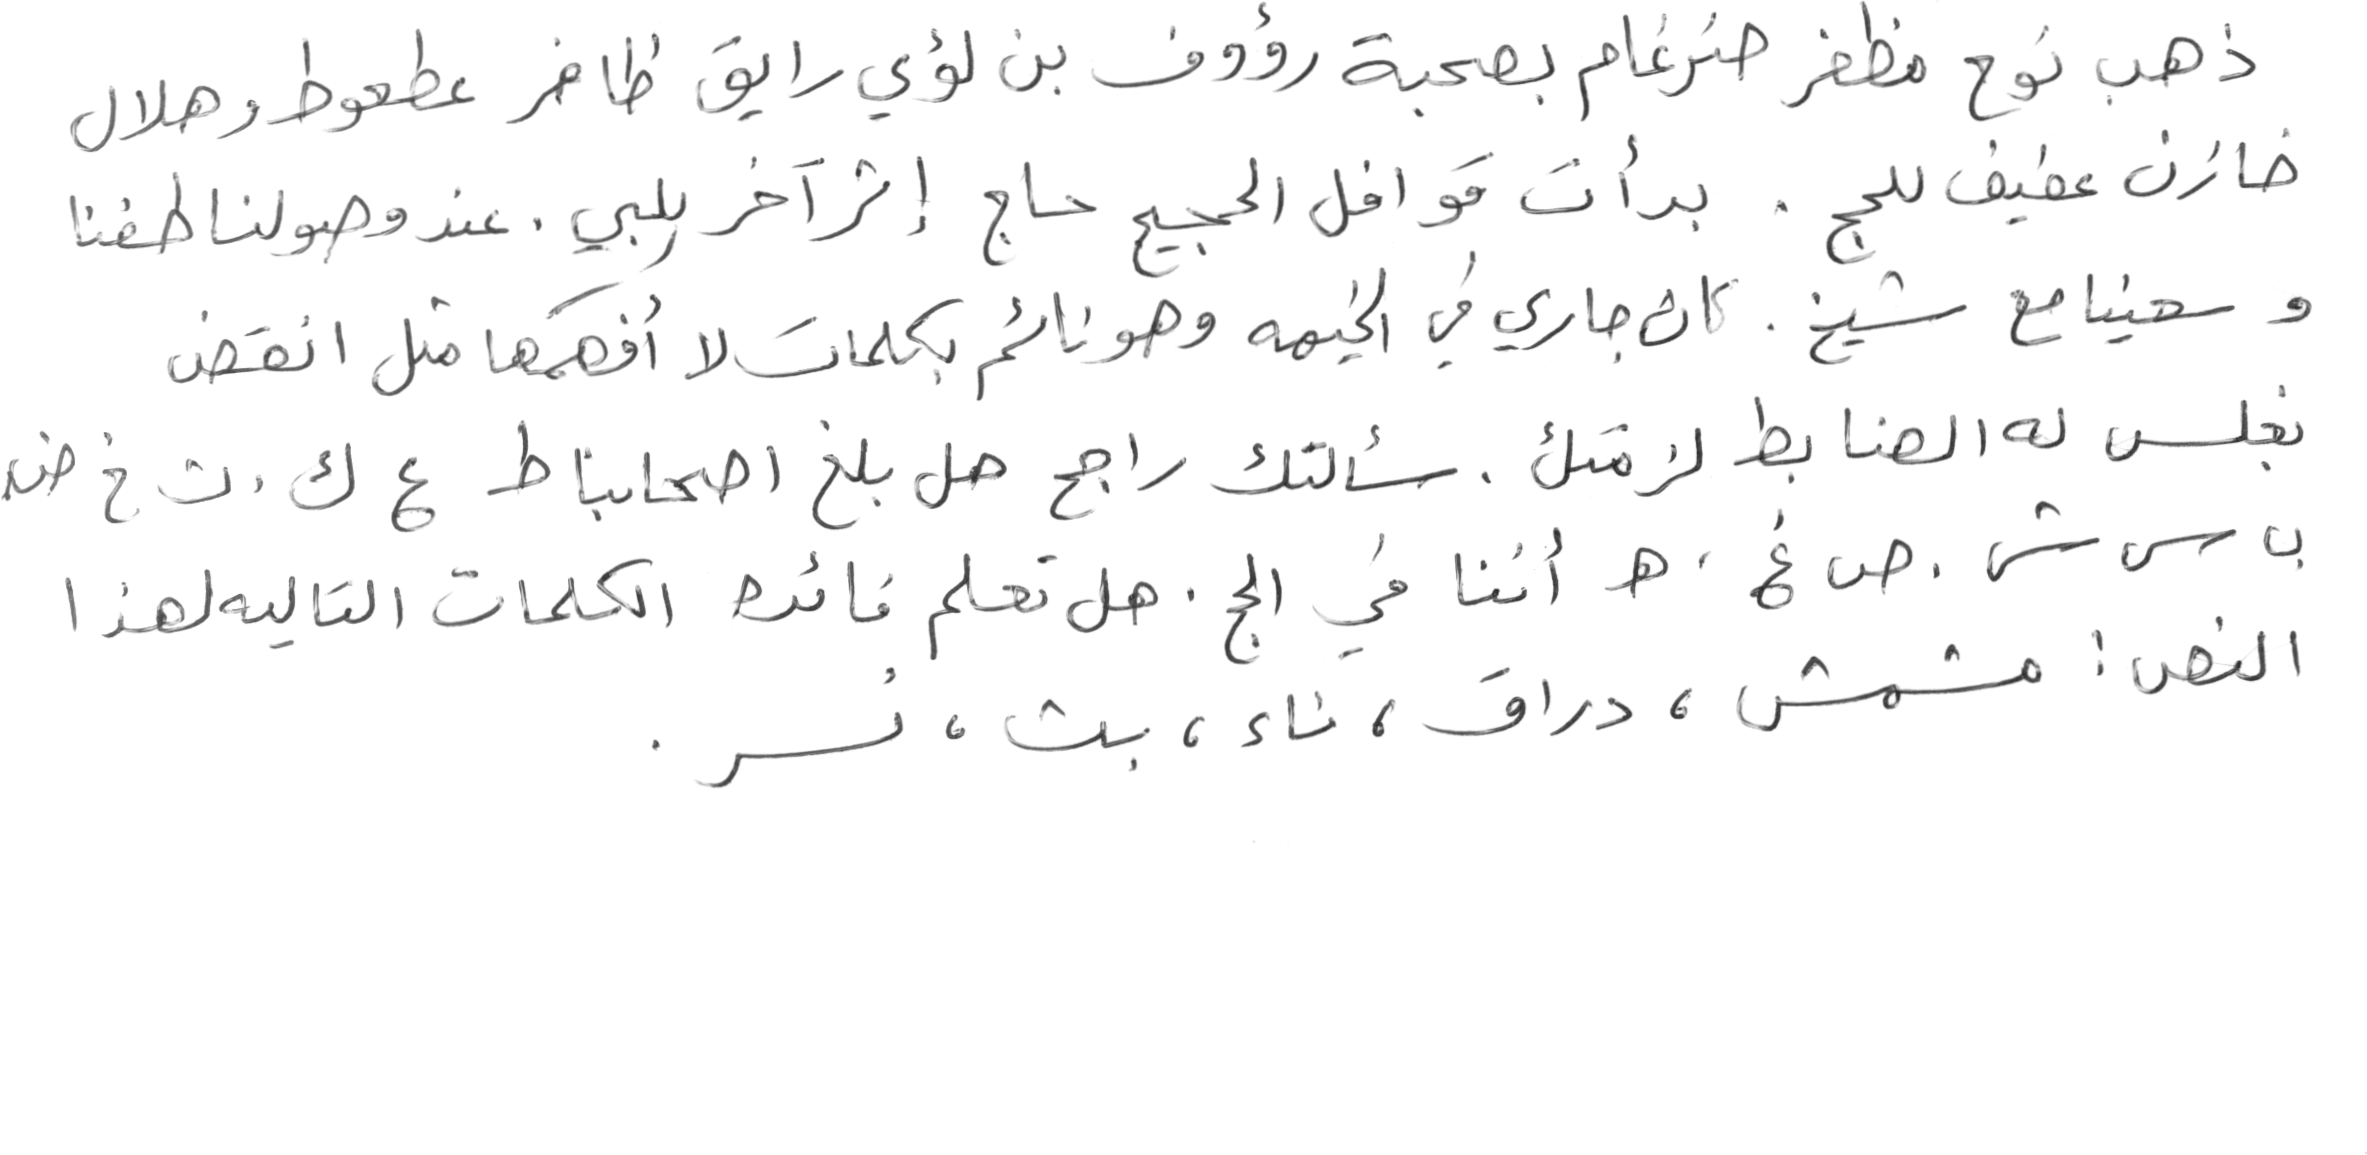 ذهب نوح مظفر ضرغام بصحبة رؤوف بن لؤي رايق ظافر عطعوط وهلال
خازن عفيف للحج. بدأت قوافل الحجيج حاج إثر آخر يلبي. عند وصولنا طفنا
وسعينا مع شيخ. كان جاري في الخيمه وهو نائم بكلمات لا أفهمها مثل انقض
بغلس له الضابط لزمتك. سألتك راجح هل بلغ اصحابنا ط ع ك. ت خ ض
ب س ش. ص غ، ه أننا في الحج. هل تعلم فائده الكلمات التاليه لهذا
النص: مشمش، دراق، ناء، بث، نسر.